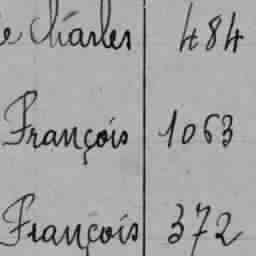 e Charles 484
François 1063
François 372